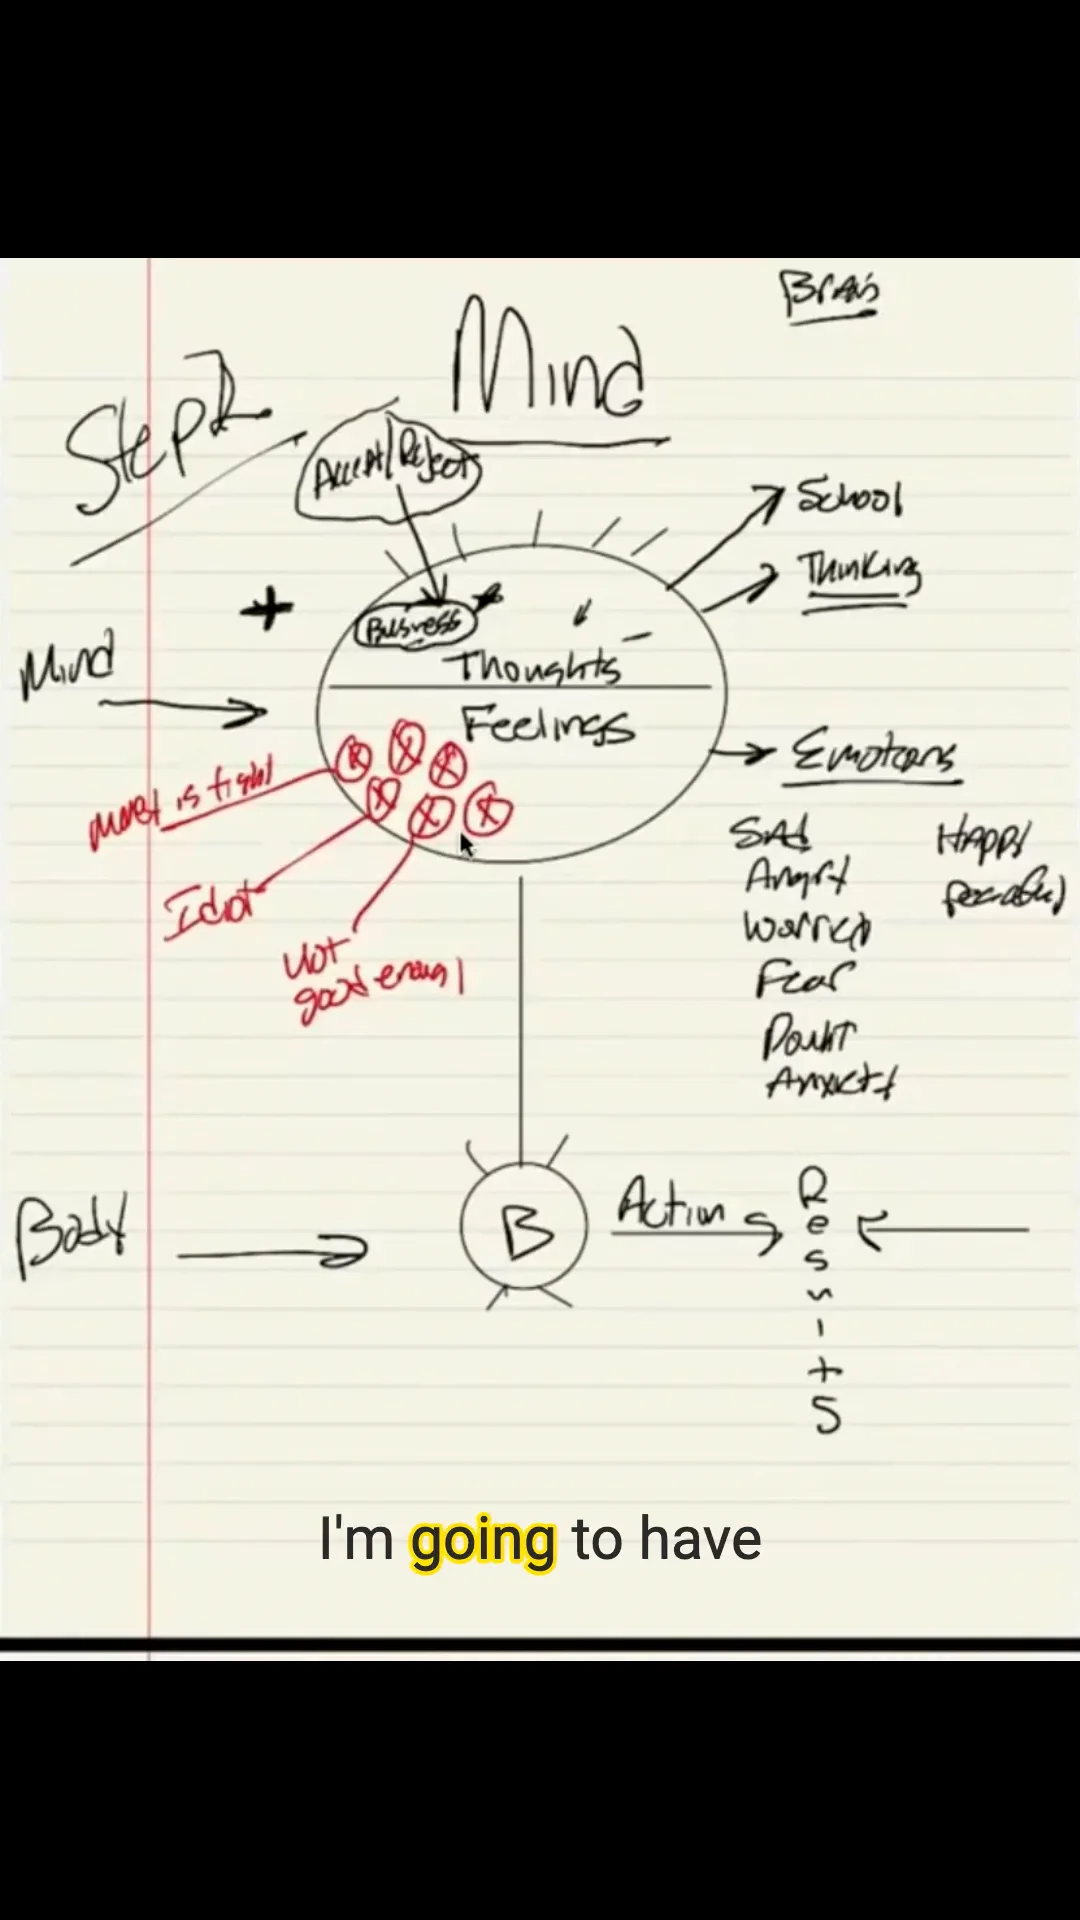 Brain
Mind
Step 2
Accept/Reject
School
Thinking
+
Business
Mind
Thoughts
Feelings
Emotions
money is tight
Idiot
Not
good enoug
Sad
Angry
Worried
Fear
Doubt
Anxiety
Happy
Peaceful
Body
B
Action
Results
I'm going to have